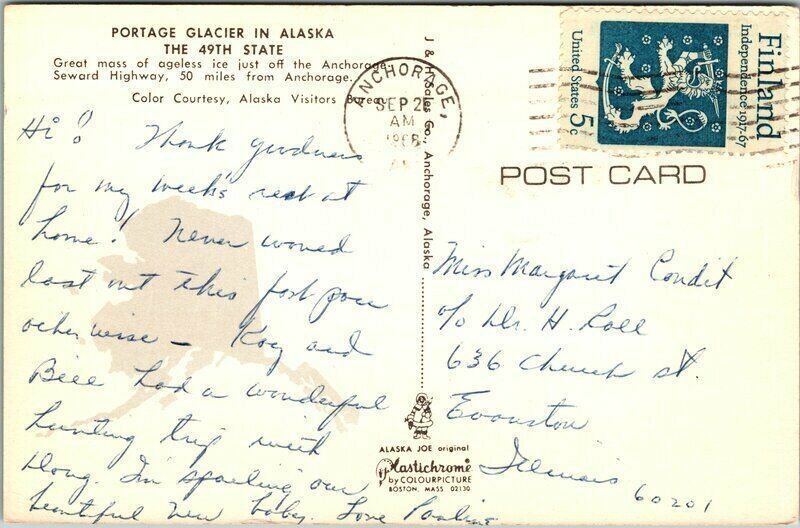 PORTAGE GLACIER IN ALASKA
THE 49TH STATE
Great mass of ageless ice just off the Anchorage-
Seward Highway, 50 miles from Anchorage.
Color Courtesy, Alaska Visitors Bureau
Hi! Thank goodness
for my week's rest at
home! Never would
last out this fast pace
otherwise — Roy and
Bill had a wonderful
hunting trip with
Doug. I'm spoiling our
beautiful new baby. Love Pauline
J & H Sales Co., Anchorage, Alaska
ANCHORAGE,
SEP 2
AM
1968
Finland
Independence 1917-67
United States 5c
POST CARD
Miss Margaret Condit
c/o Dr. H. Roll
636 Church St.
Evanston
Illinois
60201
ALASKA JOE original
Plastichrome
by COLOURPICTURE
BOSTON, MASS 02130